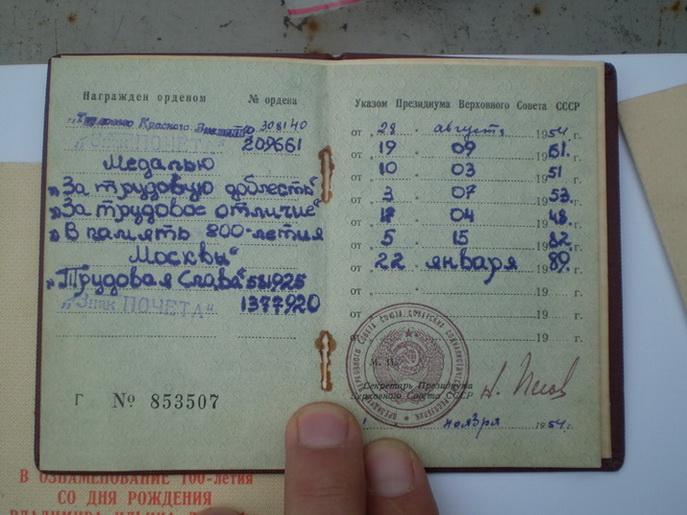 Награжден орденом
№ ордена
Трудового Красного Знамени 308140
"ЗНАК ПОЧЕТА" 209661
Медалью
"За трудовую доблесть"
"За трудовое отличие"
"В память 800-летия
Москвы"
"Трудовая Слава" 581925
"Знак ПОЧЕТА" 1377920
Г № 853507
Указом Президиума Верховного Совета СССР
от "28" августа 1954 г.
от "19" 09 1961.
от "10" 03 1951
от "3" 07 1953.
от " " 04 1948.
от "5" 15 1982
от "22" января 1989.
от " " 19 г.
от " " 19 г.
М. П.
Секретарь Президиума
Верховного Совета СССР
ноября 1954 г.
В ОЗНАМЕНОВАНИЕ 100-летия
СО ДНЯ РОЖДЕНИЯ
ВЛАДИМИРА ИЛЬИЧА